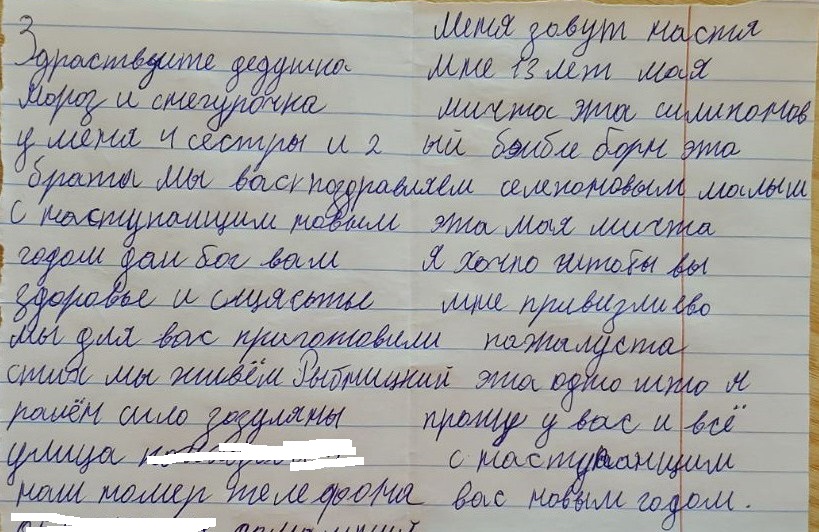 Здраствуите дедушка
мороз и снегурочка
у меня 4 сестры и 2
браты мы васк поздравляем
с наступаищим новым
годом дай бог вам
здоровье и сщясьтье
мы для вас приготовили
стих мы живём Рыбницкий
раён сило зозуляны
улица
наш номер телефона
меня зовут настя
мне 13 лет мая
мичта эта силиконов
ый бэибе борн эта
селеконовым малыш
эта мая мичта
я хочю штобы вы
мне привизли ево
пажалуста
эта одно што я
прошу у вас и всё
с наступаищим
вас новым годом.